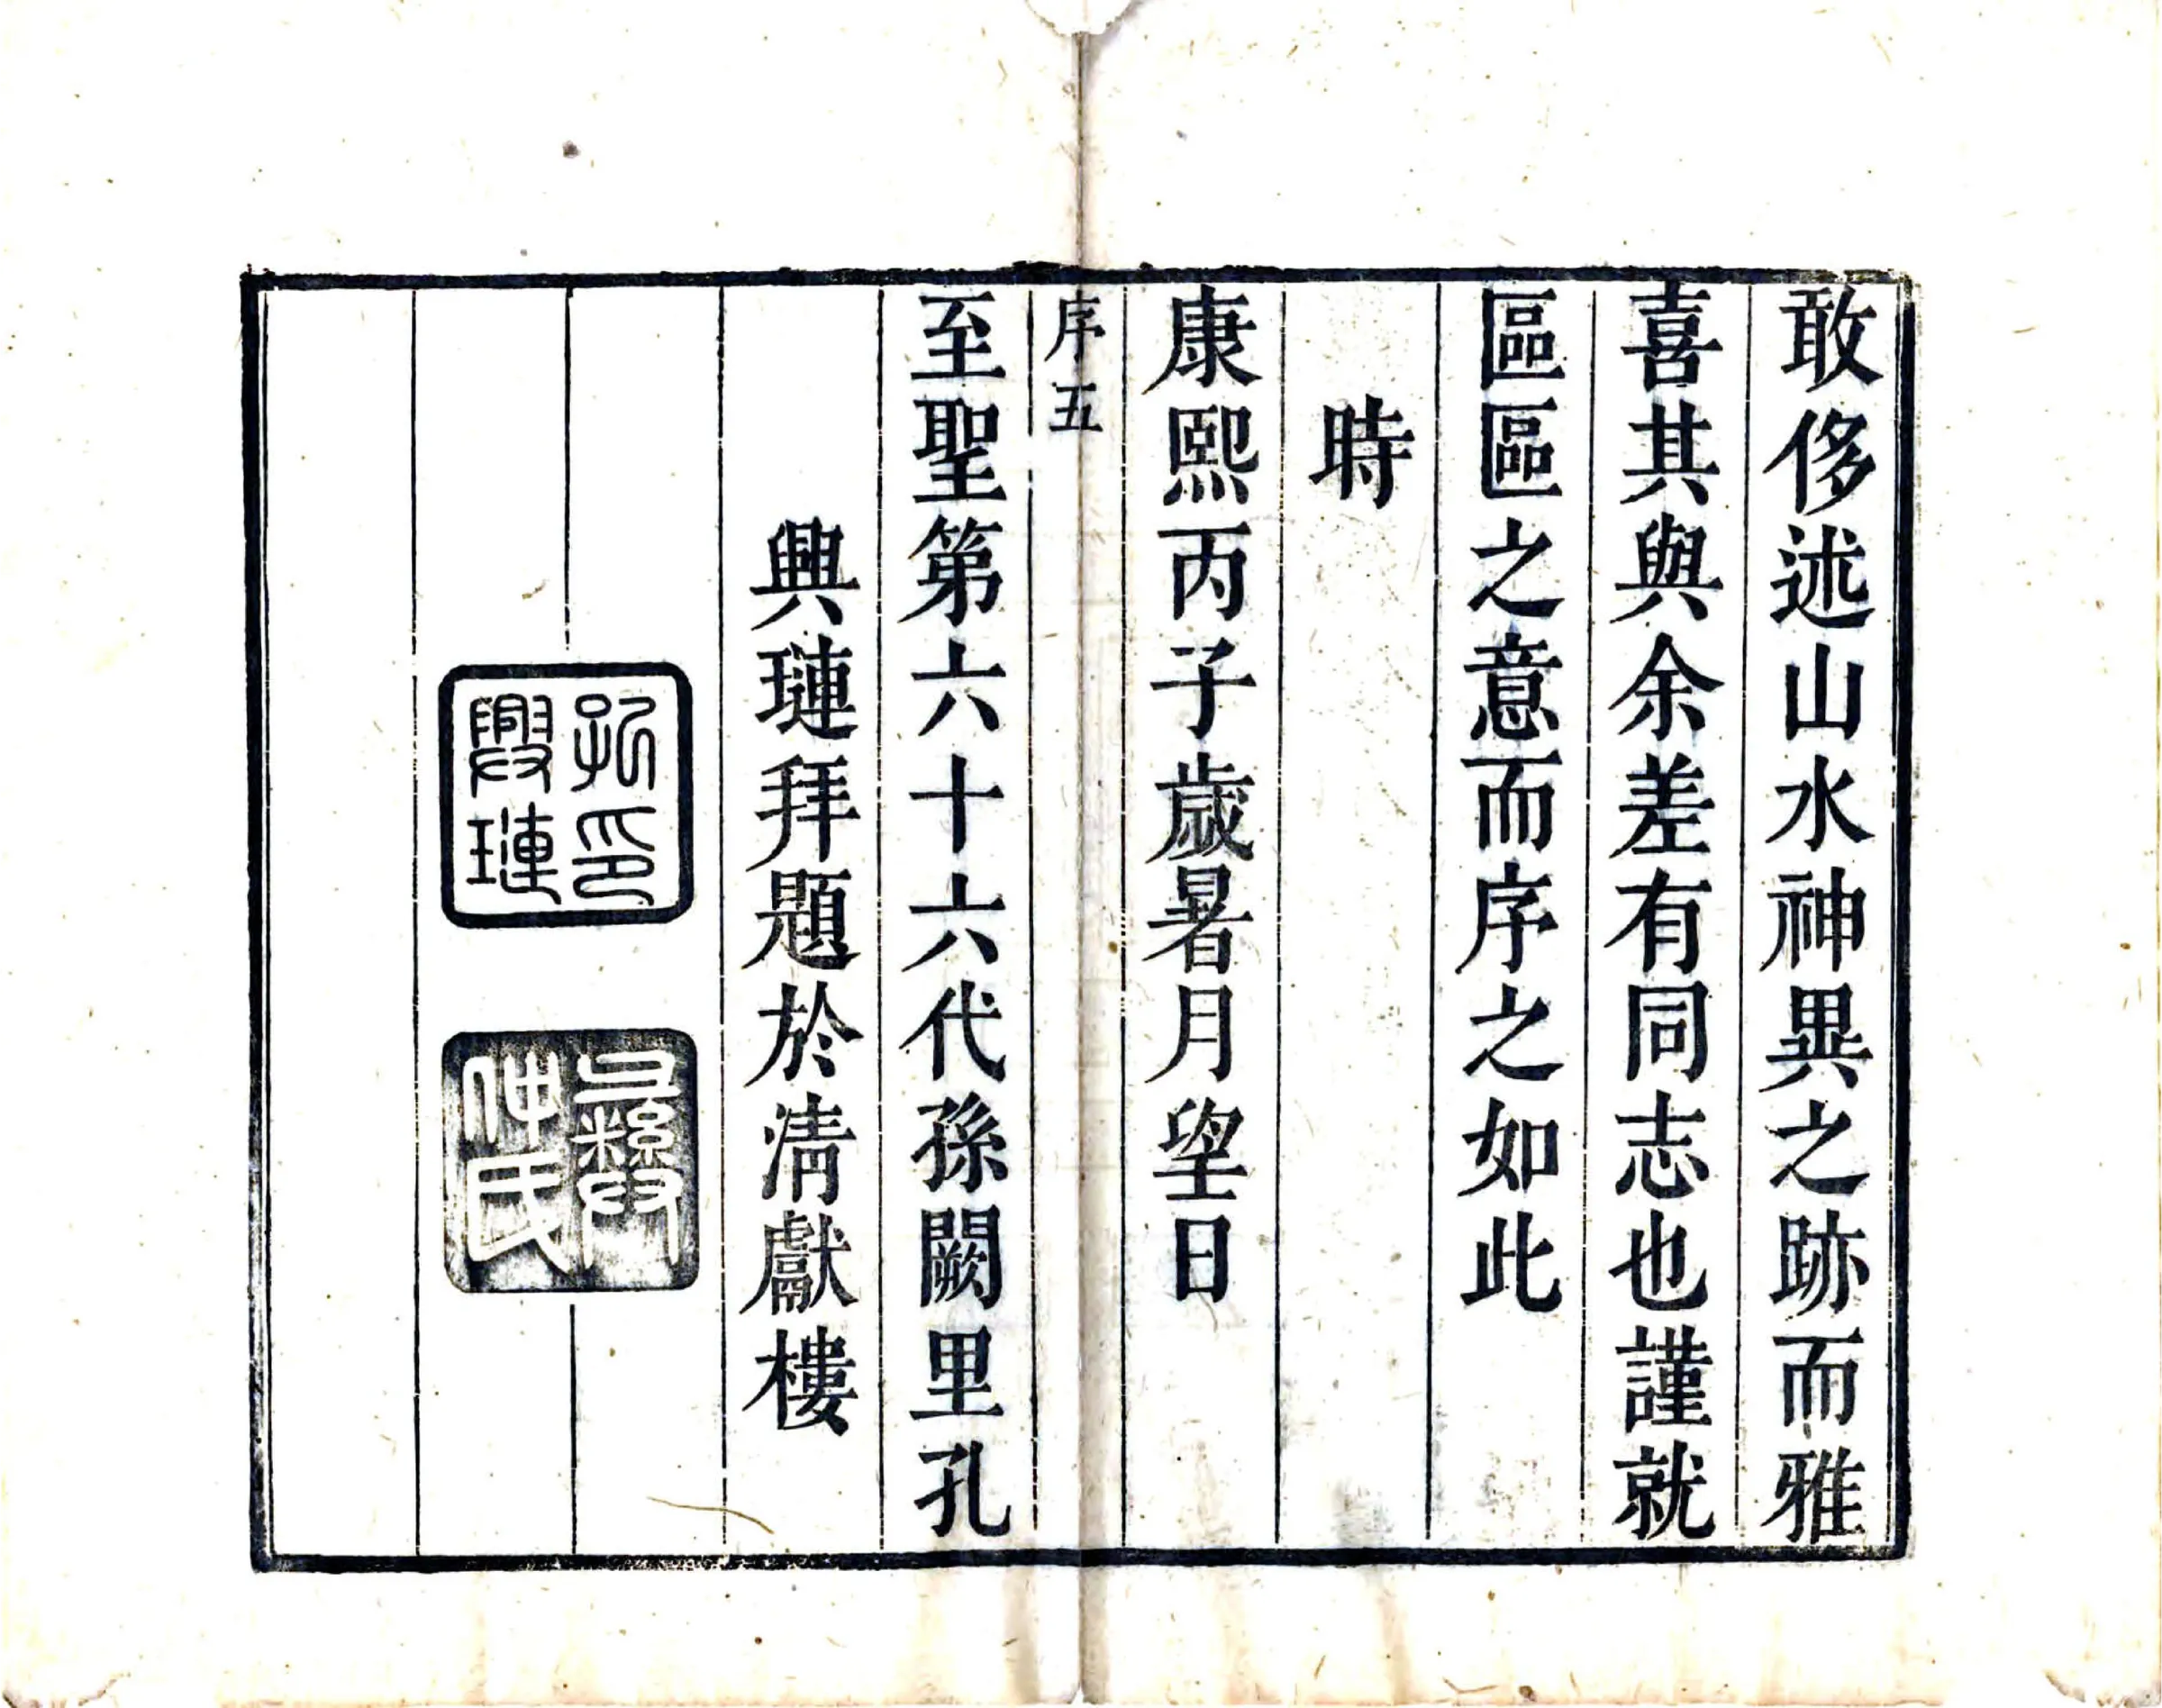 敢侈述山水神異之跡而雅
喜其與余差有同志也謹就
區區之意而序之如此
時
康熙丙子歲暑月望日
序五
至聖第六十六代孫闕里孔
興璉拜題於清獻樓
孔印
興璉
彝
仲氏